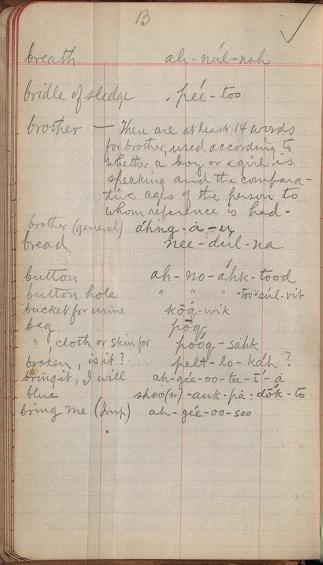 B
breath ah-núl-nah
bridle of sledge pée-too
brother — There are at least 14 words
for brother, used according to
whether a boy or a girl is
speaking and the compara-
tive ages of the person to
whom reference is had.
brother (general) áhng-a-u
bread nee-dúl-na
button ah-no-áhk-tood
button hole " " " -too-súl-vit
bucket for urine kōg-wik
bag pōg
" cloth or skin for póog-sahk
broken, is it? pelt-lo-káh?
bring it, I will ah-gée-oo-tee-ī-á
blue shoo(n)-auk-pa-dōk-to
bring me (Imp) ah-gée-oo-soo